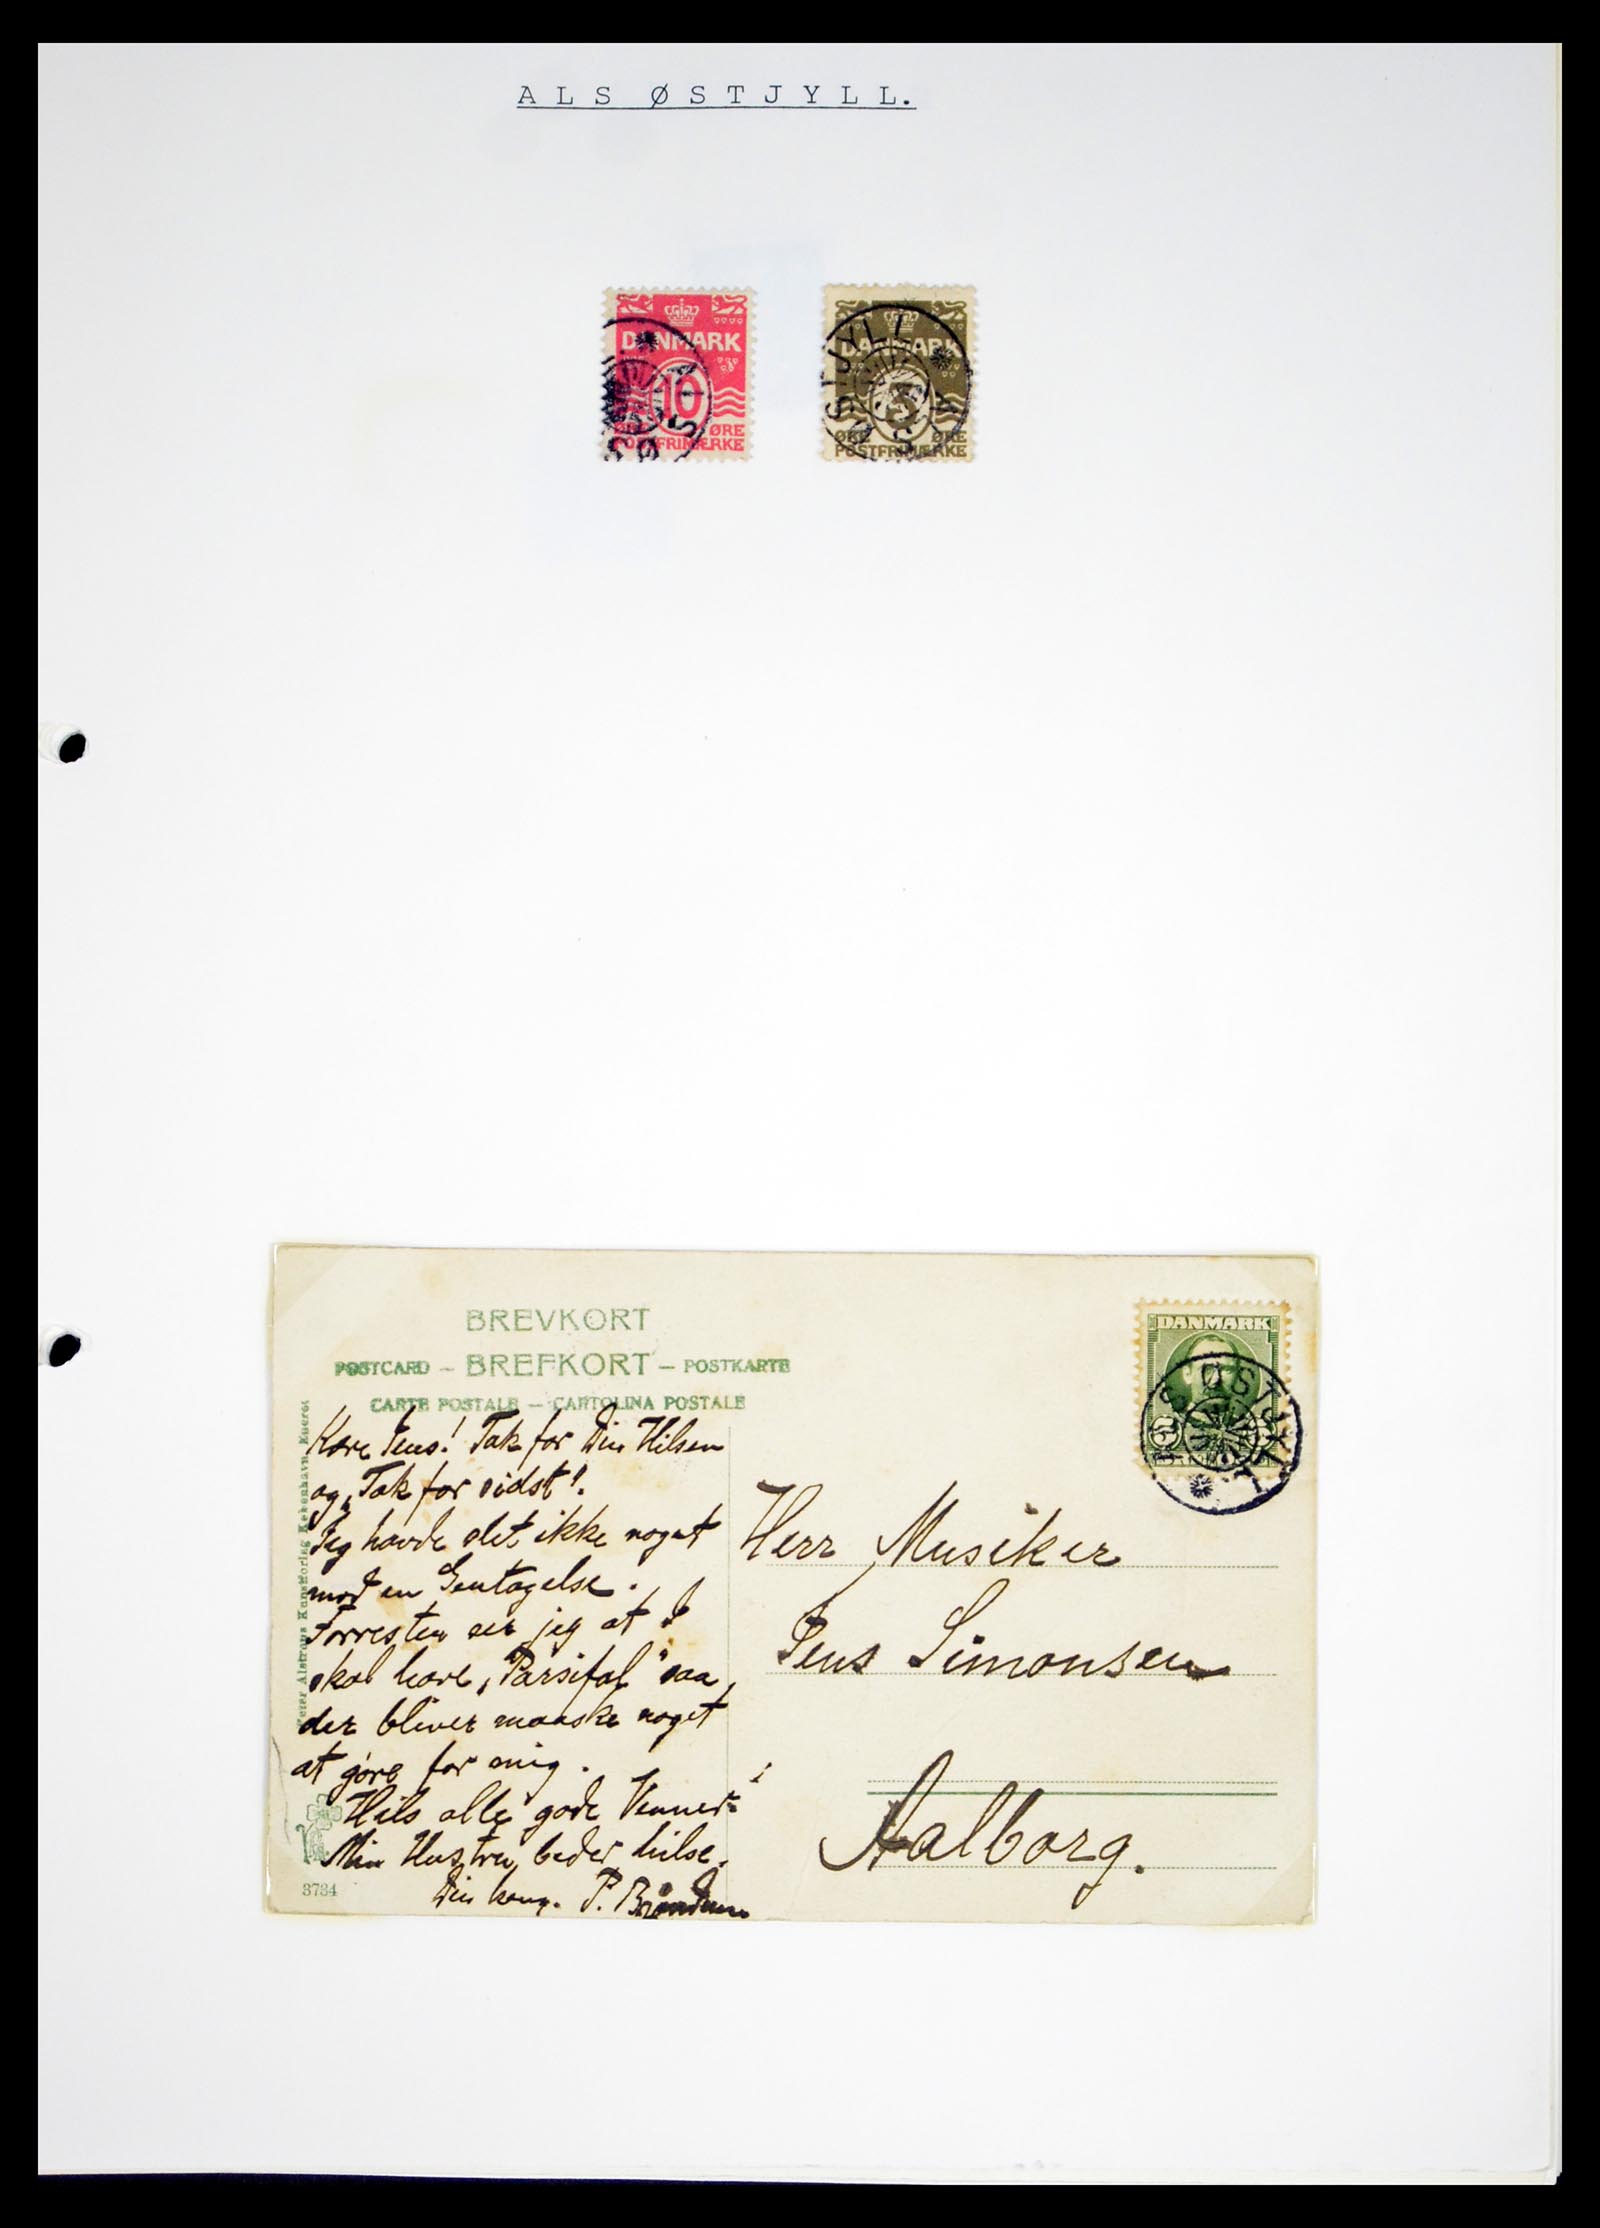 ALS ØSTJYLL.
DANMARK
10
ØRE ØRE
POSTFRIMÆRKE
ALS ØSTJYLL
DANMARK
3
ØRE ØRE
POSTFRIMÆRKE
BREVKORT
POSTCARD – BREFKORT – POSTKARTE
CARTE POSTALE – CARTOLINA POSTALE
Peter Alstrups Kunstforlag København Eneret
DANMARK
ALS ØSTJYLL
Kære Jens! Tak for Din Hilsen
og „Tak for sidst".
Jeg havde slet ikke noget
mod en Gentagelse.
Forresten ser jeg at I
skal have „Parsifal" saa
der bliver maaske noget
at gøre for mig.
Hils alle gode Venner
Min Hustru beder hilse.
Din heng. P. Brøndum
3734
Herr Musiker
Jens Simonsen
i
Aalborg.